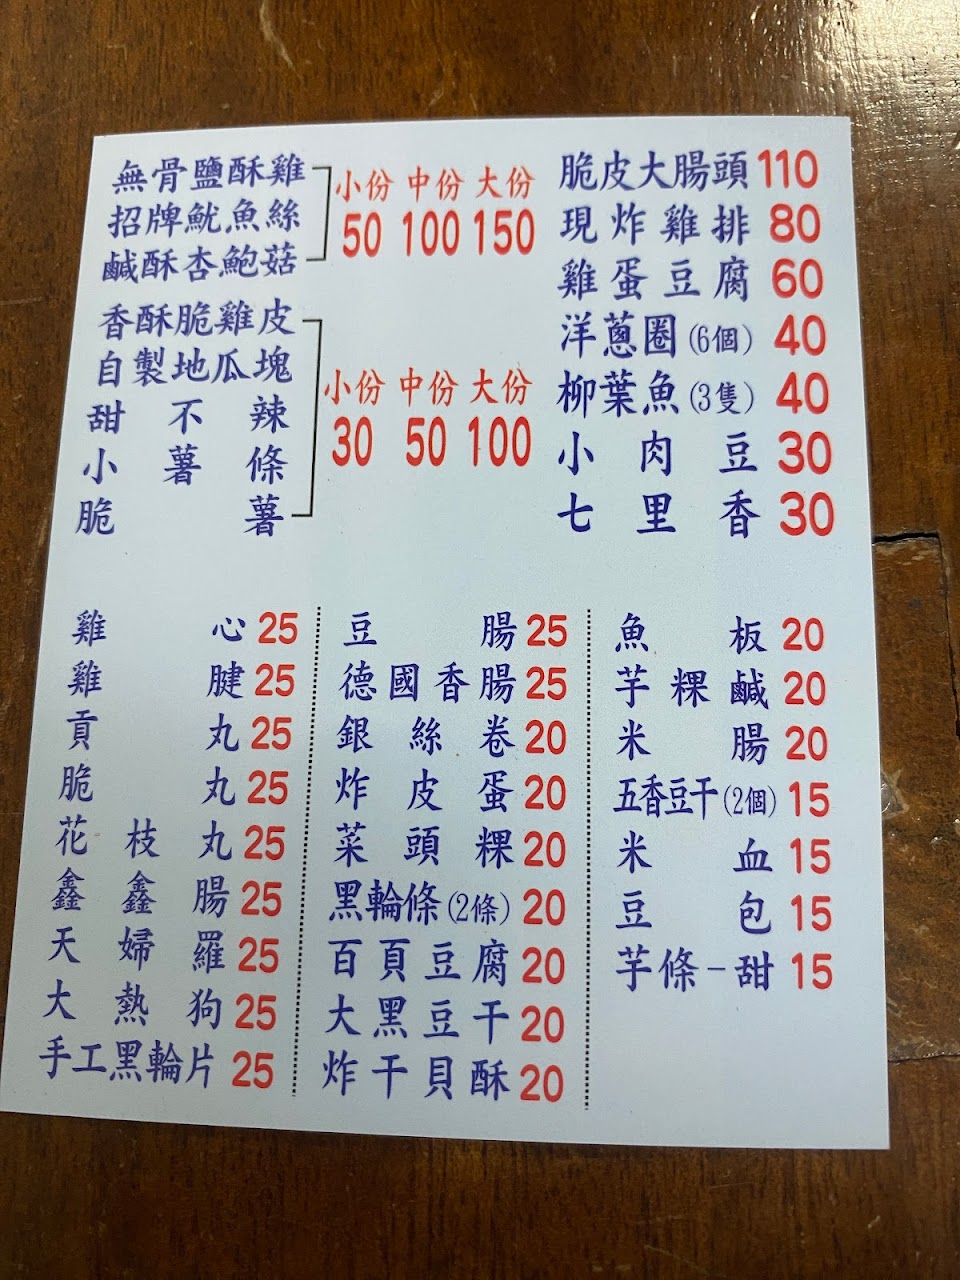 無骨鹽酥雞
招牌魷魚絲
鹹酥杏鮑菇
小份 中份 大份
50 100 150
香酥脆雞皮
自製地瓜塊
甜不辣
小薯條
脆薯
小份 中份 大份
30 50 100
脆皮大腸頭 110
現炸雞排 80
雞蛋豆腐 60
洋蔥圈(6個) 40
柳葉魚(3隻) 40
小肉豆 30
七里香 30
雞心 25
雞腱 25
貢丸 25
脆丸 25
花枝丸 25
鑫鑫腸 25
天婦羅 25
大熱狗 25
手工黑輪片 25
豆腸 25
德國香腸 25
銀絲卷 20
炸皮蛋 20
菜頭粿 20
黑輪條(2條) 20
百頁豆腐 20
大黑豆干 20
炸干貝酥 20
魚板 20
芋粿鹹 20
米腸 20
五香豆干(2個) 15
米血 15
豆包 15
芋條-甜 15